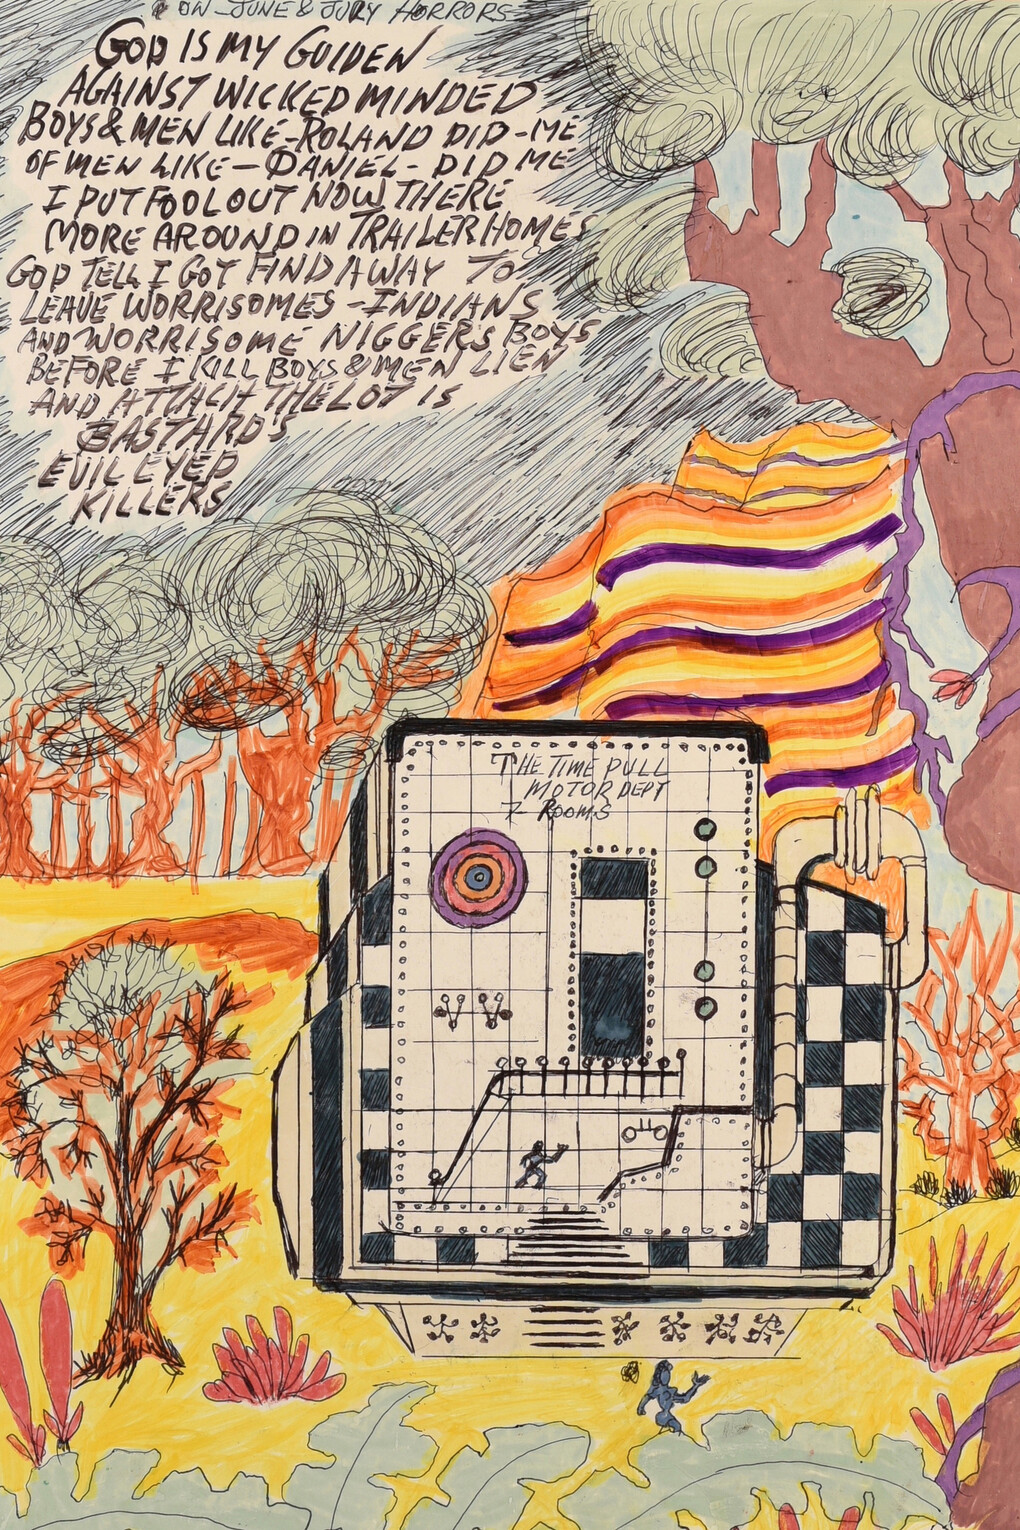 ON JUNE & JURY HORRORS
GOD IS MY GUIDEN
AGAINST WICKED MINDED
BOYS & MEN LIKE-ROLAND DID-ME
OF MEN LIKE-DANIEL-DID ME
I PUT FOOL OUT NOW THERE
MORE AROUND IN TRAILER HOMES
GOD TELL I GOT FIND AWAY TO
LEAVE WORRISOMES-INDIANS
AND WORRISOME NIGGERS BOYS
BEFORE I KILL BOYS & MEN LIEN
AND ATTACH THE LOT IS
BASTARD'S
EVIL EYED
KILLERS
THE TIME PULL
MOTOR DEPT
7- ROOMS